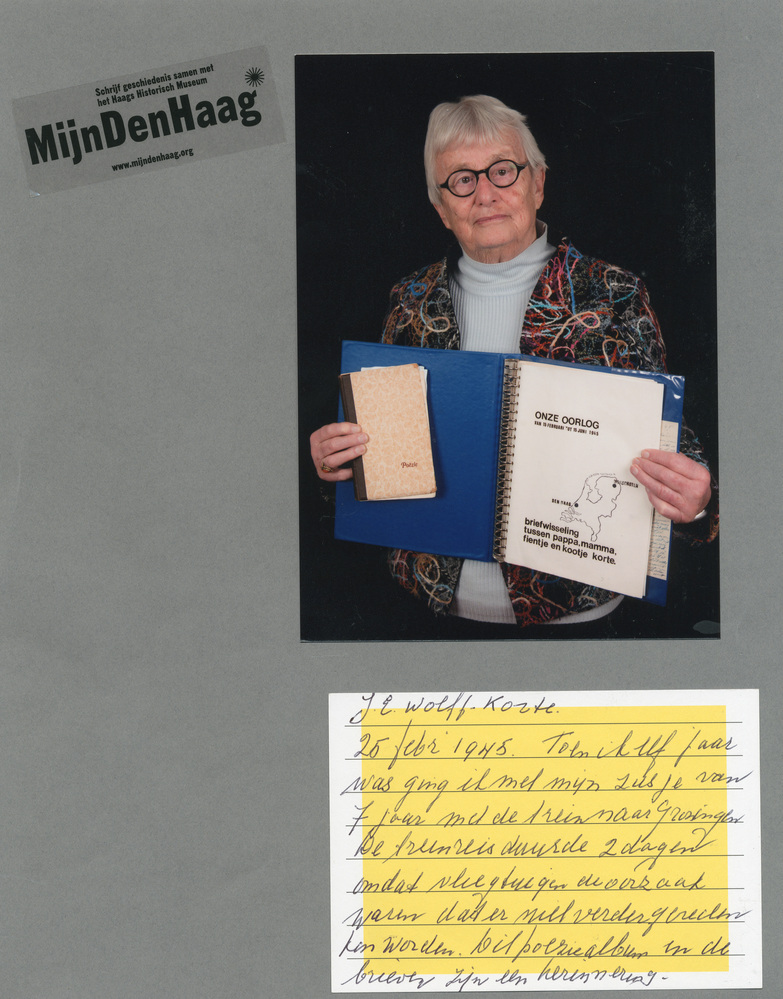 Schrijf geschiedenis samen met
het Haags Historisch Museum
MijnDenHaag
www.mijndenhaag.org
Poëzie
ONZE OORLOG
VAN 15 FEBRUARI TOT 15 JUNI 1945
DEN HAAG
briefwisseling
tussen pappa, mamma,
fientje en kootje korte.
J.E. Wolff-Korte.
25 febr 1945. Toen ik elf jaar
was ging ik met mijn zusje van
7 jaar met de trein naar Groningen
De treinreis duurde 2 dagen
omdat vliegtuigen de oorzaak
waren dat er niet verder gereden
kon worden. Dit poeziealbum en de
brieven zijn een herinnering.